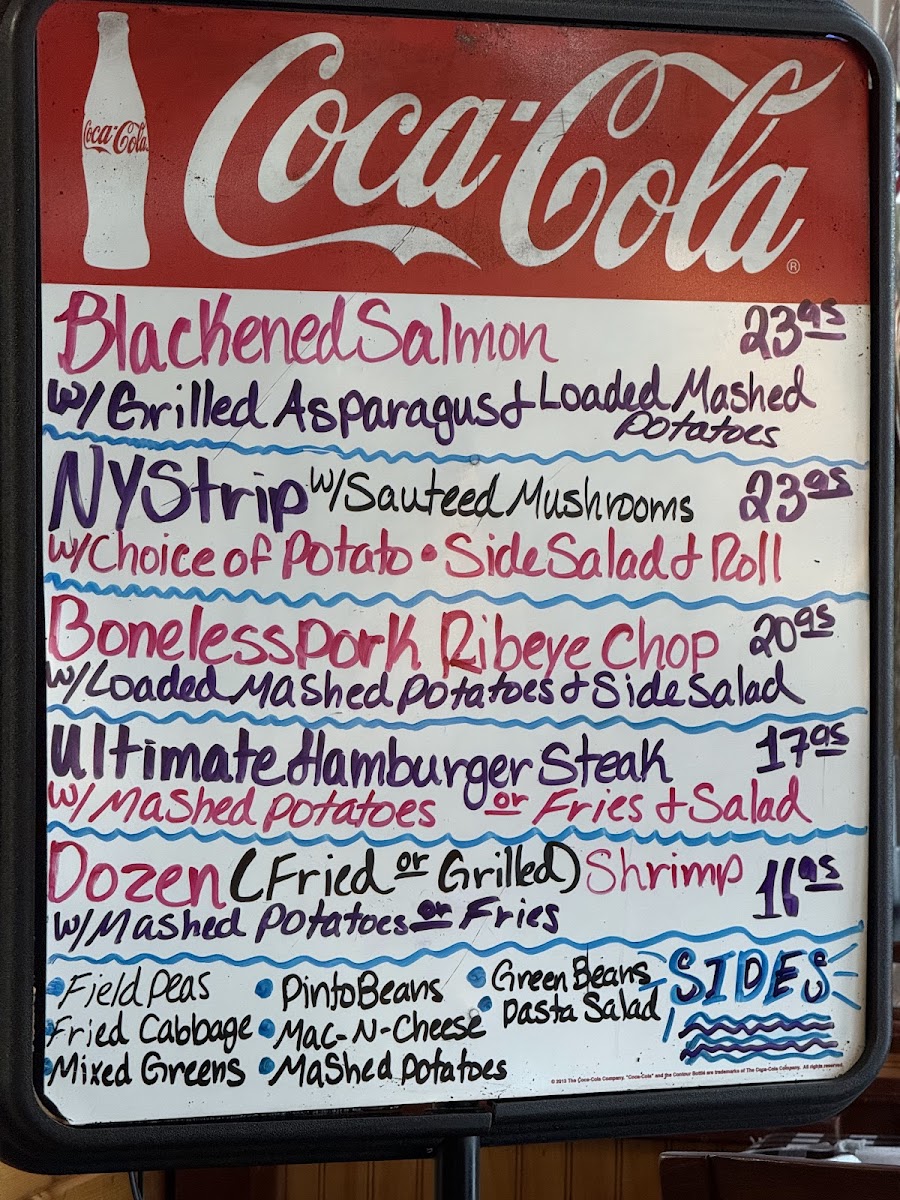 Coca-Cola
Coca-Cola®
Blackened Salmon 23.95
w/Grilled Asparagus & Loaded Mashed
Potatoes
NY Strip w/Sauteed Mushrooms 23.95
w/Choice of Potato • Side Salad & Roll
Boneless Pork Ribeye Chop 20.95
w/Loaded Mashed Potatoes & Side Salad
Ultimate Hamburger Steak 17.95
w/Mashed Potatoes or Fries & Salad
Dozen (Fried or Grilled) Shrimp 16.95
w/Mashed Potatoes or Fries
SIDES
• Field Peas • Pinto Beans • Green Beans
• Fried Cabbage • Mac-N-Cheese • Pasta Salad
• Mixed Greens • Mashed Potatoes
© 2013 The Coca-Cola Company. "Coca-Cola" and the Contour Bottle are trademarks of The Coca-Cola Company. All rights reserved.